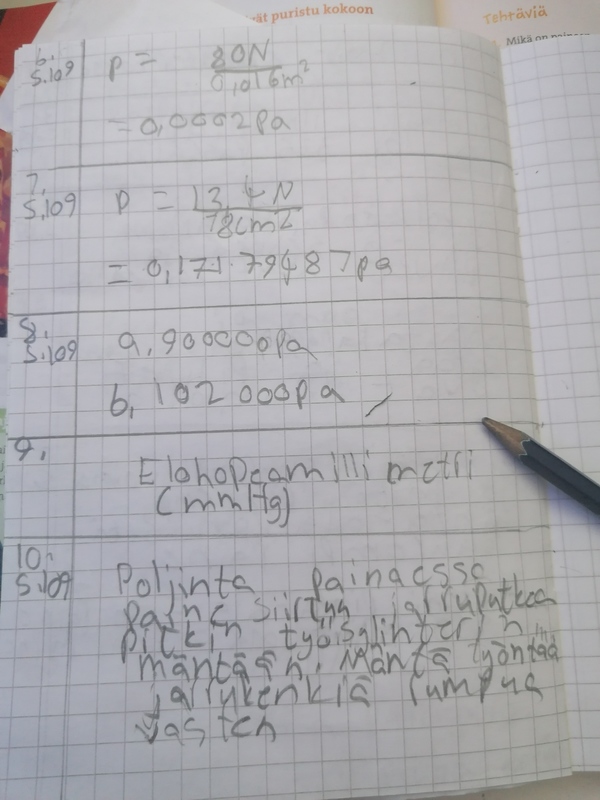 ät puristu kokoon
Tehtäviä
Mikä on
6.
S.109
p = 80N
0,016m²
= 0,0002pa
7.
S.109
p = 13,4N
78cm²
= 0,17179487pa
8.
S.109
a, 900000pa
b, 102 000pa
9.
Elohopeamillimetri
(mmHg)
10.
S.109
Poljinta painaessa
paine siirtyy jarruputkea
pitkin työsylinterin
mäntään. Mäntä työntää
jarrukenkiä rumpua
vasten